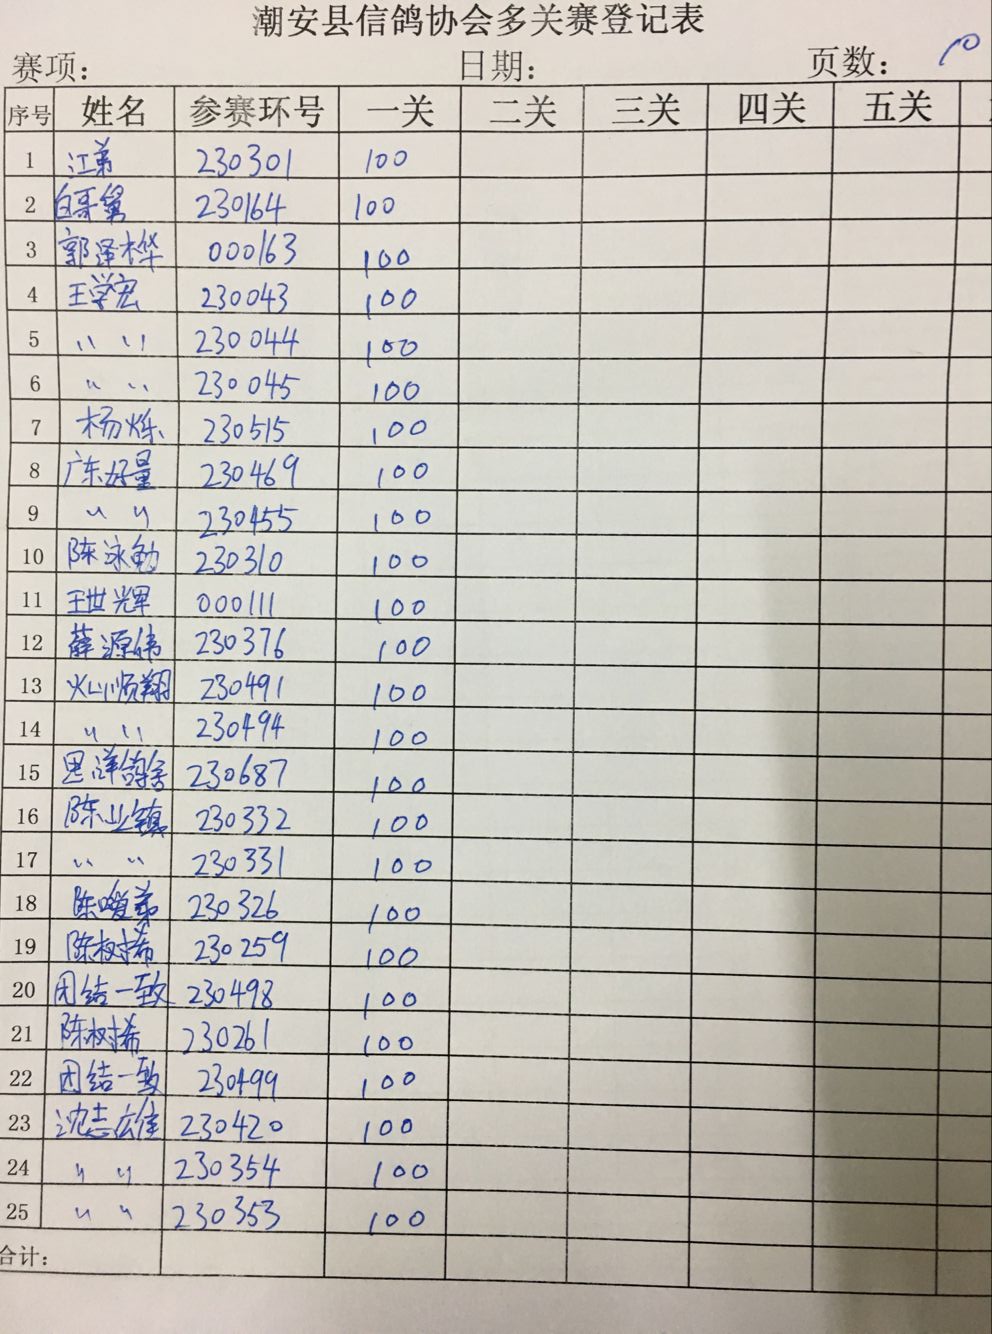 潮安县信鸽协会多关赛登记表
赛项： 日期： 页数： 10
序号 姓名 参赛环号 一关 二关 三关 四关 五关
1 江弟 230301 100
2 白哥舅 230164 100
3 郭泽桦 000163 100
4 王学宏 230043 100
5 〃 〃 230044 100
6 〃 〃 230045 100
7 杨烁 230515 100
8 广东好量 230469 100
9 〃 〃 230455 100
10 陈泳勉 230310 100
11 王世辉 000111 100
12 薛源伟 230376 100
13 灿顺翔 230491 100
14 〃 〃 230494 100
15 洋鸽舍 230687 100
16 陈业镇 230332 100
17 〃 〃 230331 100
18 陈嗳弟 230326 100
19 陈树 230259 100
20 团结一致 230498 100
21 陈树 230261 100
22 团结一致 230499 100
23 沈志雄 230420 100
24 〃 〃 230354 100
25 〃 〃 230353 100
合计：